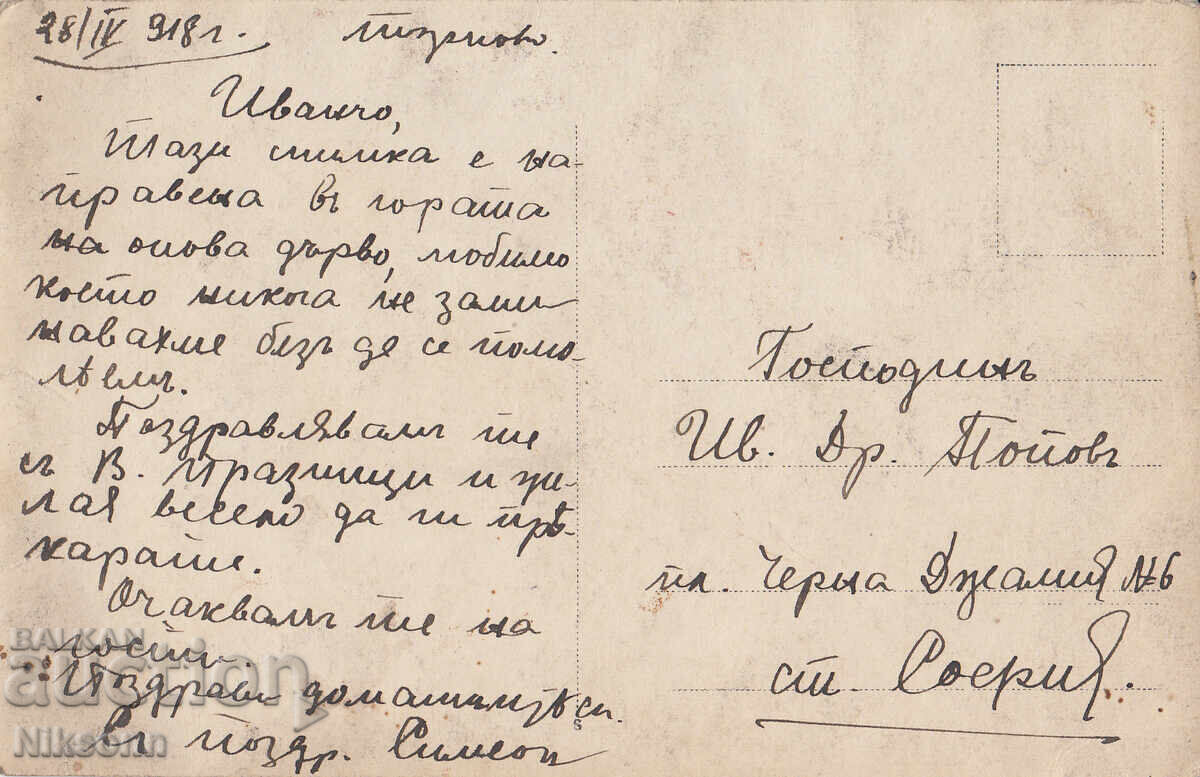 28/IV 918 г. Търново.
Иванчо,
Тази снимка е на-
правена въ гората
на онова дърво, любимо
което никога не зами
навахме безъ да се помо-
лѣемъ.
Поздравлявамъ те
съ В. празници и же-
лая весело да ги прѣ-
карате.
Очаквамъ те на
гости.
Поздрави домашнитѣ си.
Съ поздр. Симеон
Господинъ
Ив. Др. Поповъ
пл. Черна Джамия №6
ст. София.
BALKAN
auction
Niksann